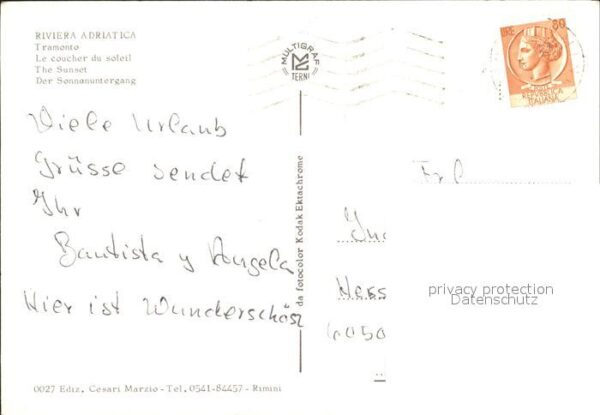 RIVIERA ADRIATICA
Tramonto
Le coucher du soleil
The Sunset
Der Sonnenuntergang
MULTIGRAF
TERNI
LIRE 60
POSTE
REPUBBLICA
ITALIANA
Viele Urlaub
Grüsse sendet
Ihr
Bautista y Angela
Hier ist Wunderschön
da fotocolor Kodak Ektachrome
Frl
Hess
6050
privacy protection
Datenschutz
0027 Ediz. Cesari Marzio - Tel. 0541-84457 - Rimini